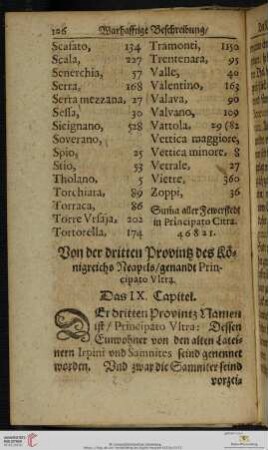 126 Warhafftige Beschreibung/
Scafato, 134
Scala, 227
Senerchia, 57
Serra, 168
Serra mezzana, 27
Sessa, 30
Sicignano, 528
Soverano,
Spio, 25
Stio, 53
Tholano, 5
Torchiara, 89
Torraca, 86
Torre Vrsaja, 202
Tortorella, 174
Tramonti, 1150
Trentenara, 95
Valle, 40
Valentino, 163
Valava, 90
Valvano, 109
Vattola, 29 (82
Vettica maggiore,
Vettica minore, 8
Vetrale, 27
Viette, 360
Zoppi, 36
Suma aller Fewerstedt
in Principato Citra.
46821.
Von der dritten Provintz des Kö-
nigreichs Neapels/genandt Prin-
cipato Vltra.
Das IX. Capitel.
DEr dritten Provintz Namen
ist/Principato Vltra: Dessen
Einwohner von den alten Latei-
nern Irpini und Samnites seind genennet
worden. Und zwar die Samniter seind
vorzei-